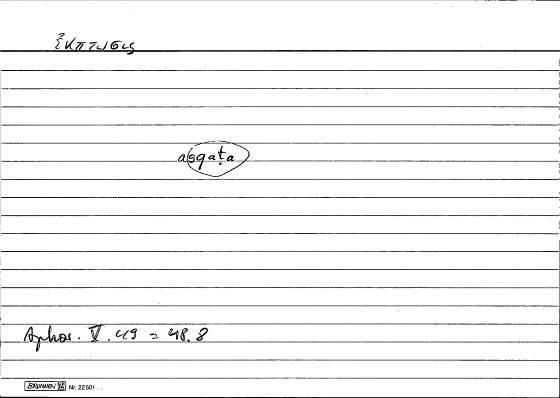 ἔκπτωσις
asqaṭa
Aphor. V. 49 = 48.8
BRUNNEN Nr. 22501